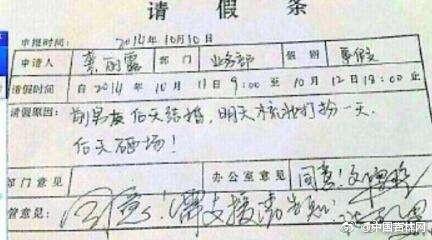 请假条
申报时间: 2014年10月10日
申请人 丽露 部门 业务部 假别 事假
请假时间 自2014年10月11日9:00至10月12日18:00止
请假原因: 前男友后天结婚,明天梳妆打扮一天.
后天砸场!
部门意见 办公室意见 同意!
管意见: 同意!需支援请告知!
@中国吉林网